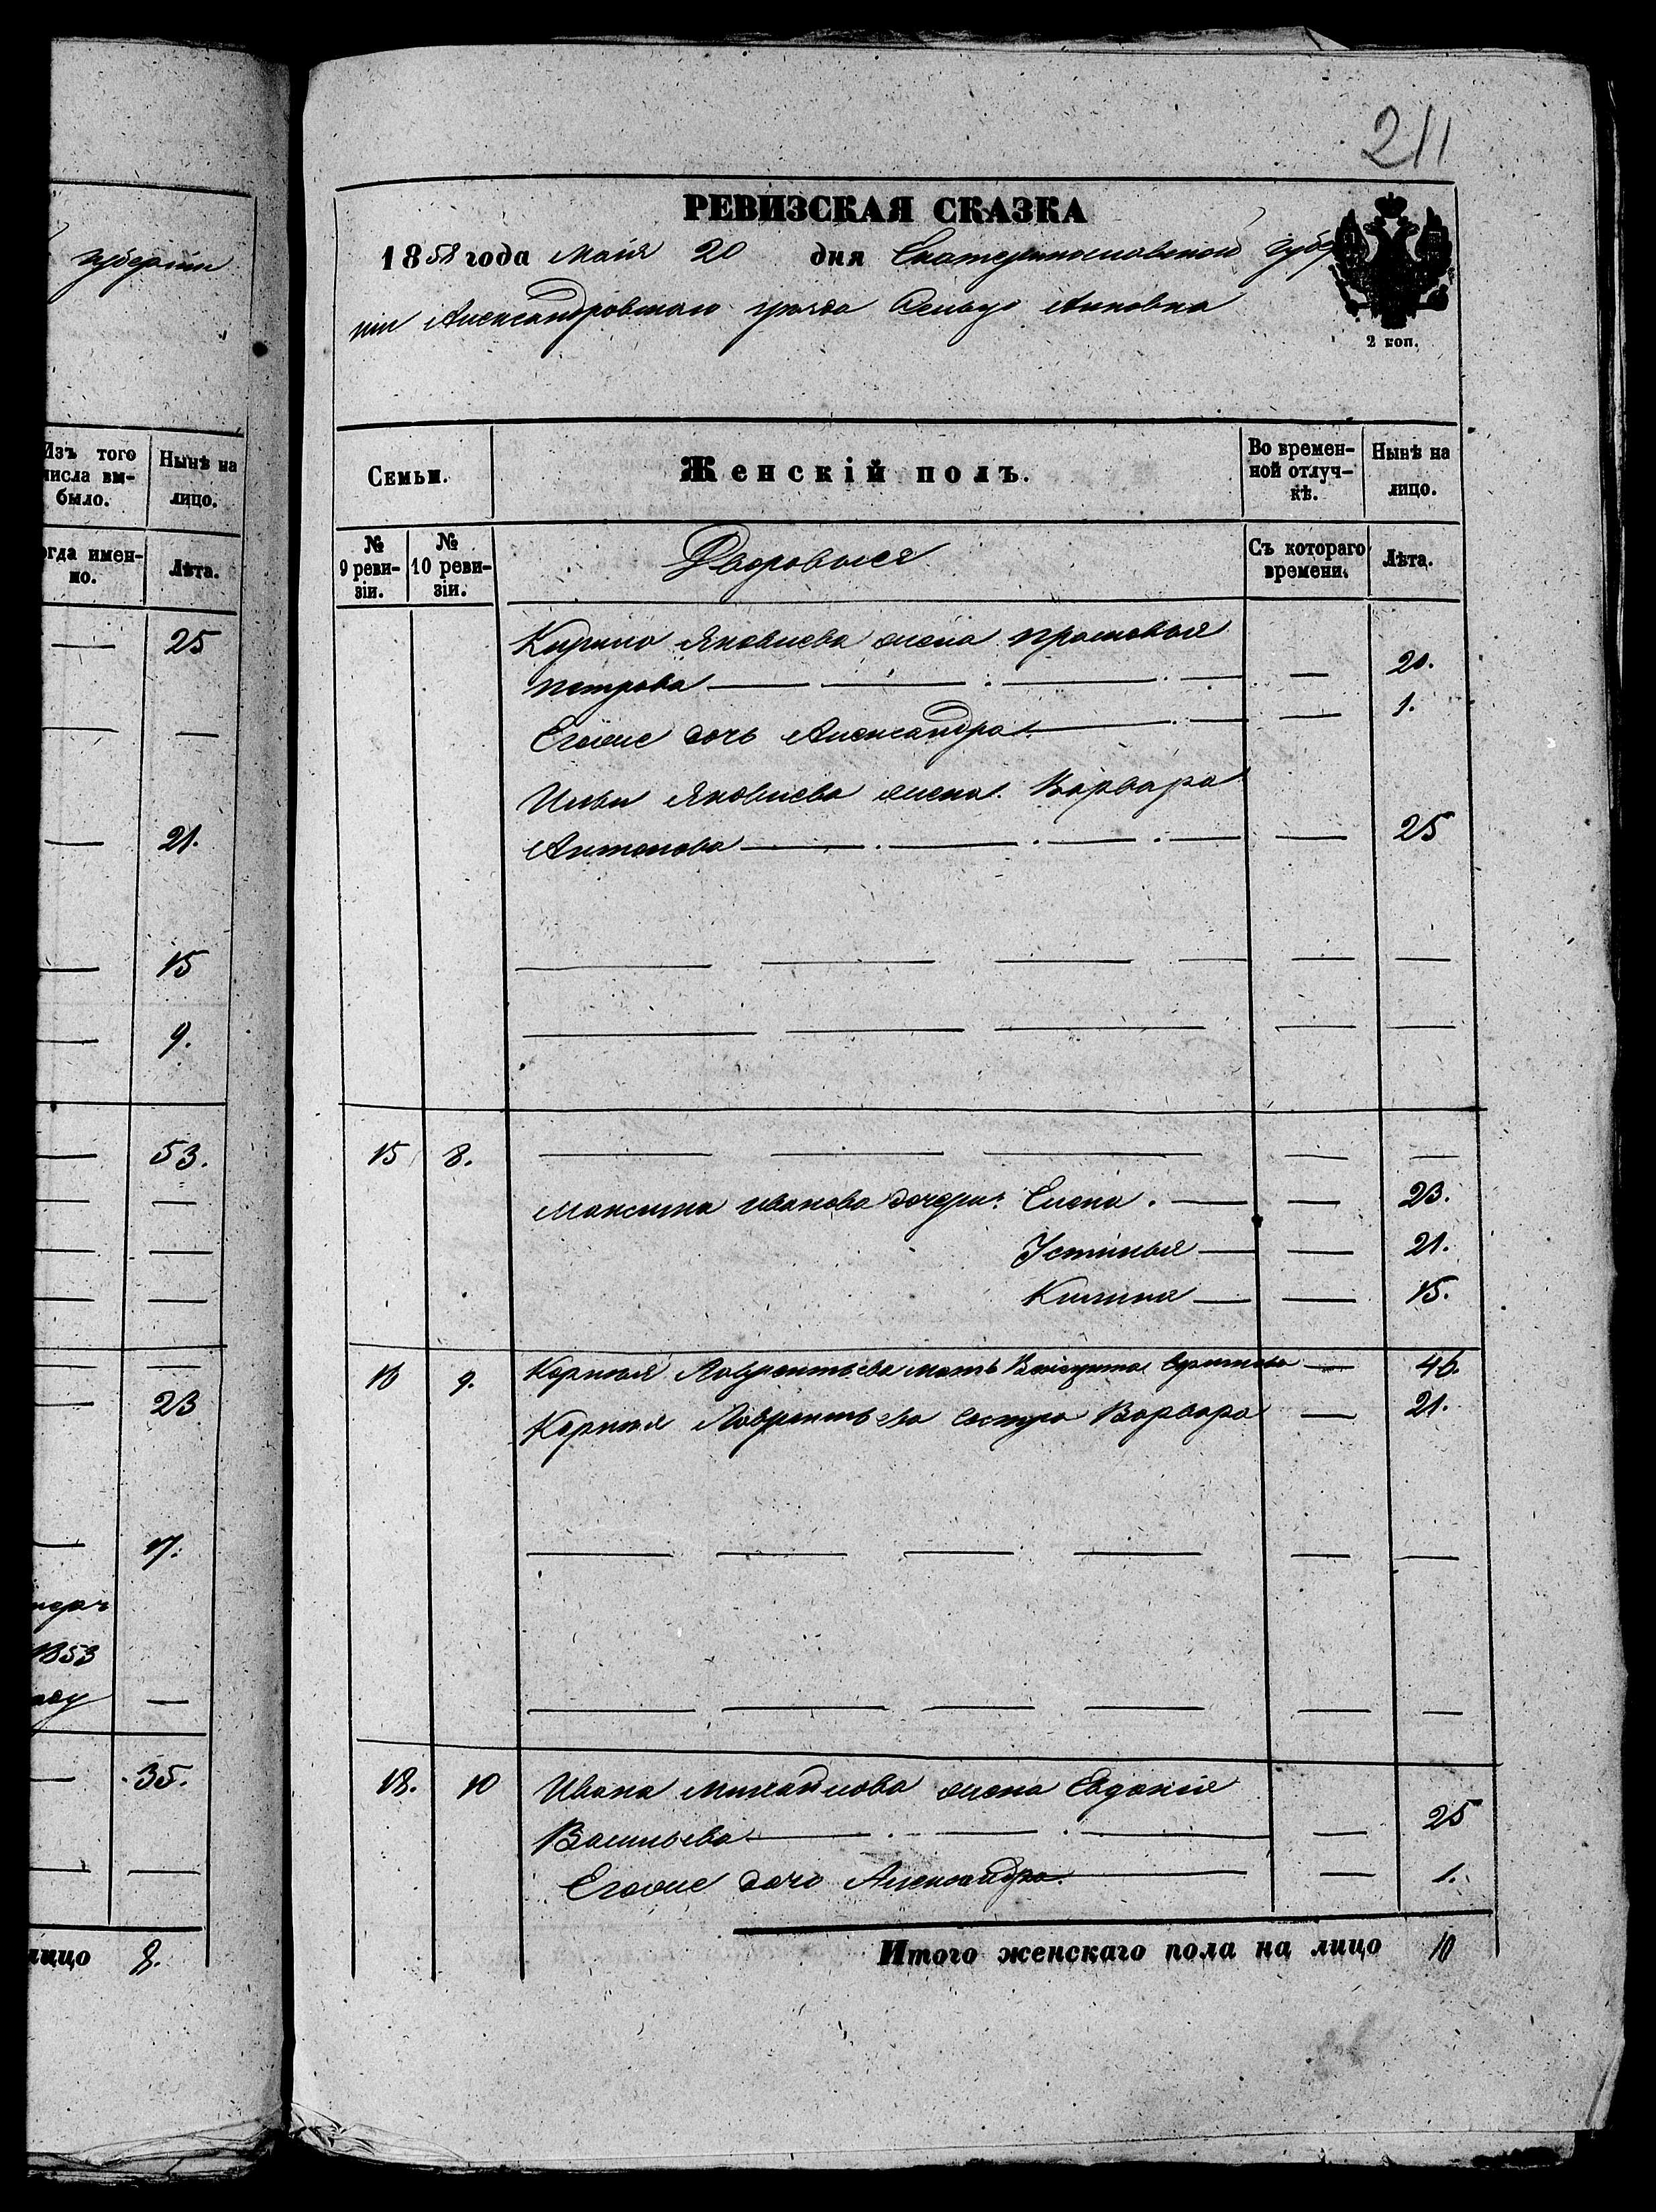 губернiи
Изъ того числа вы-было.
Нынѣ на лицо.
когда имен-но.
Лѣта.
25
21.
15
9.
53.
23
17.
1853
году
35.
лицо 8.
211
РЕВИЗСКАЯ СКАЗКА
1858 года Маiя 20 дня Екатеринославской губер
нiи Александровскаго уѣзда Сельцо Анновка
2 коп.
Семьи.
Женскiй полъ.
Во времен-ной отлуч-кѣ.
Нынѣ на лицо.
№ 9 реви-зiи.
№ 10 реви-зiи.
Дворовыя
Съ котораго времени.
Лѣта.
Кирило Яковлева жена Прасковья
Петрова 20.
Егоже дочь Александра 1.
Ильи Яковлева жена Варвара
Антонова 25
15 8.
Максима Иванова дочери: Елена. 23.
Устинья 21.
Килина 15.
16 9. Корнея Лаврентьева мать 46.
Корнея Лаврентьева сестра Варвара 21.
18. 10 Ивана Михайлова жена Евдокiя
Васильева 25
Егоже дочь Александра 1.
Итого женскаго пола на лицо 10